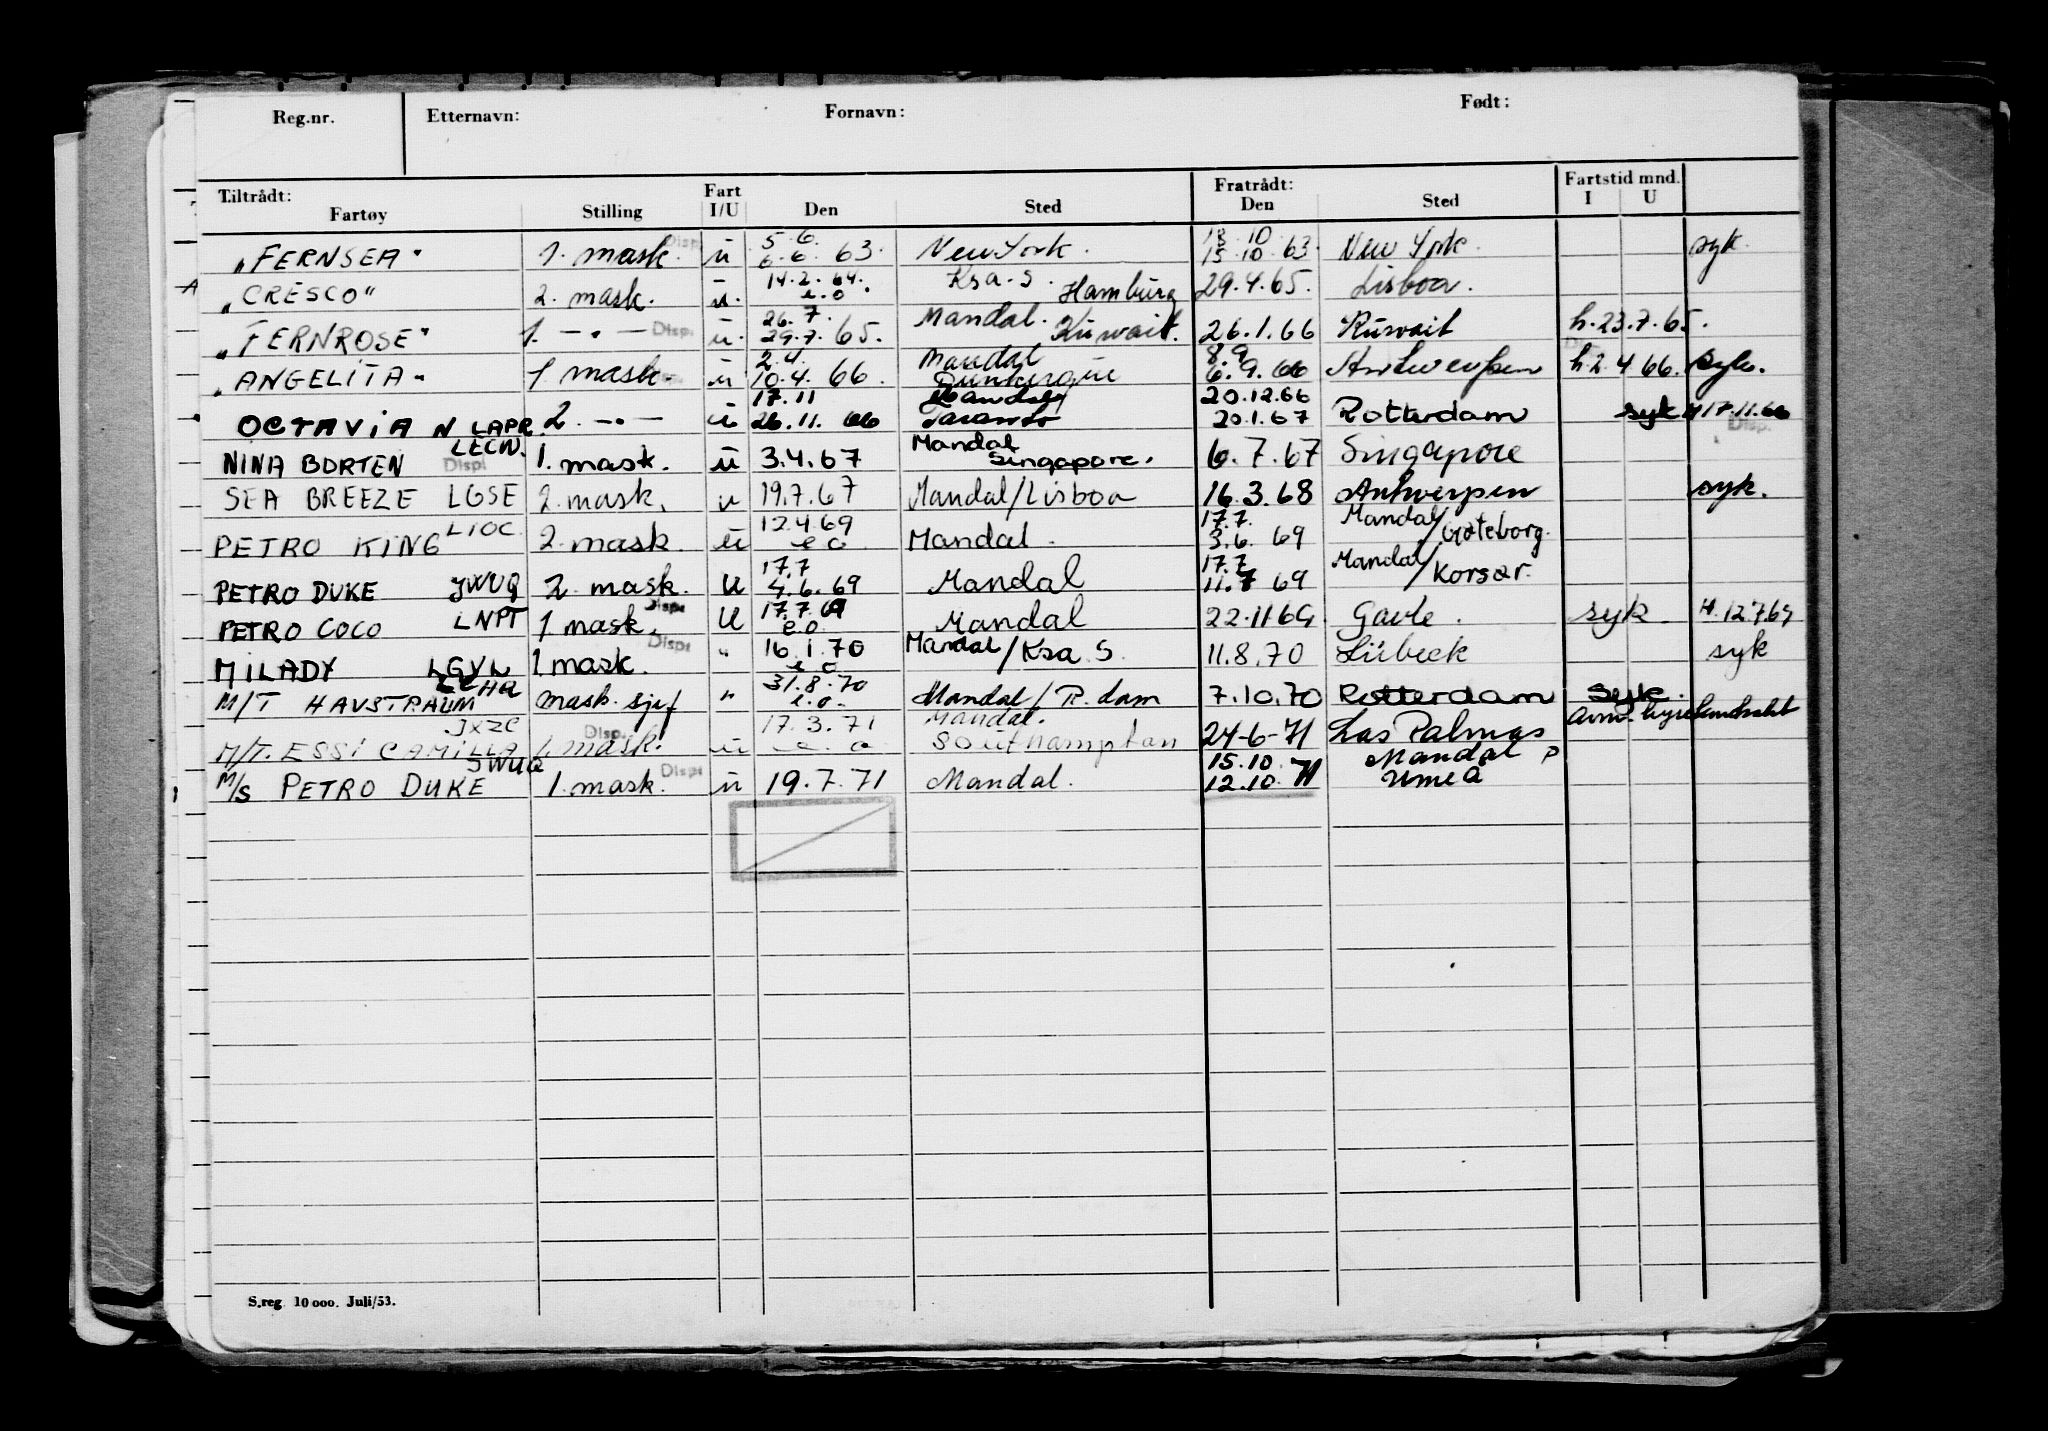 Reg.nr. Etternavn: Fornavn: Født:
Tiltrådt: Fart Fratrådt: Fartstid mnd.
Fartøy Stilling I/U Den Sted Den Sted I U
5.6. 13.10
"FERNSEA" 1. mask. Disp u 6.6. 63. New York. 15.10.63. New York. syk.
14.2.64. Ksa.S.
"CRESCO" 2. mask. u. e.o. Hamburg 29.4.65. Lisboa.
26.7. Mandal.
"FERNROSE" 1. — " — Disp. u. 29.7.65. Kuwait. 26.1.66 Kuwait h.23.7.65.
2.4. Mandal 8.9
"ANGELITA" 1 mask. u 10.4.66. Dunkerque 6.9.66 Antwerpen h.2.4 66. syk.
17.11 Mandal 20.12.66
OCTAVIA N LAPR. 2. — " — u 26.11.66 Taranto 20.1.67 Rotterdam syk H 17.11.66
LECN. Mandal Disp.
NINA BORTEN Displ 1. mask. u 3.4.67 Singapore. 6.7.67 Singapore
SEA BREEZE LGSE 2. mask. u 19.7.67 Mandal/Lisboa 16.3.68 Antwerpen syk.
LIOC 12.4.69 17.7. Mandal/
PETRO KING 2. mask. u e o Mandal. 3.6. 69 Gøteborg.
17.7 17.7 Mandal/
PETRO DUKE JWUQ 2. mask. U 4.6.69 Mandal 11.7 69 Korsør.
Disp. 17.7.69
PETRO COCO LNPT 1. mask. U e.o. Mandal 22.11 69 Gavle. syk. H.12.7.69
Displ 16.1.70
MILADY LGYL 1. mask. " e o Mandal/Ksa S. 11.8.70 Lübeck syk
31.8.70
M/T HAVSTRAUM mask. sjef " e.o. Mandal/R.dam 7.10.70 Rotterdam syk.
JXZC Disp. 17.3.71 Mandal.
M/T. ESSI CAMILLA 1. mask. u e. o Southampton 24-6-71 Las Palmas
JWUQ 15.10. Mandal P
M/S PETRO DUKE 1. mask. Displ u 19.7.71 Mandal. 12.10.71 Umeå
S.reg. 10 000. Juli/53.